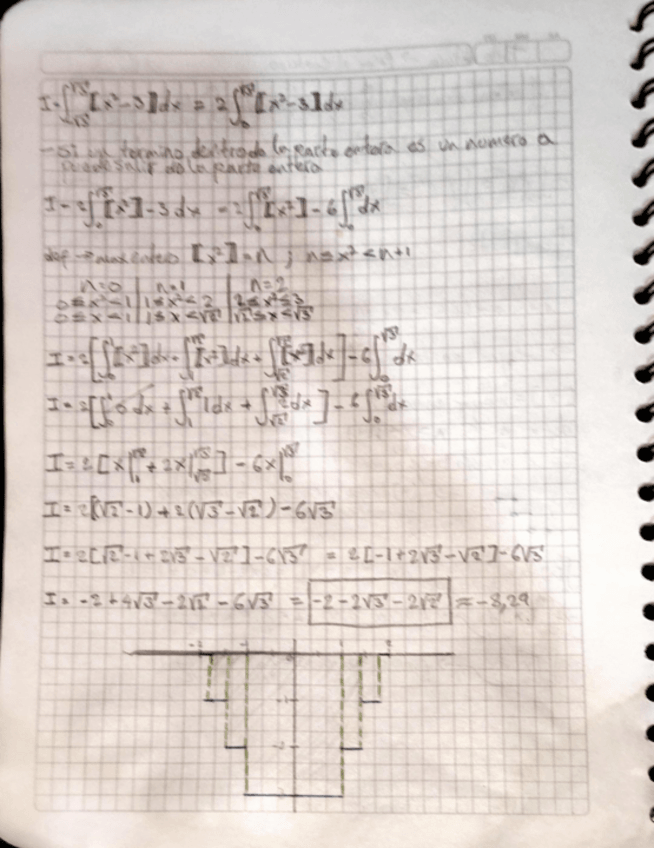 I = ∫_{-√3}^{√3} [x²-3]dx = 2∫_0^{√3} [x²-3]dx
- Si un termino dentro de la parte entera es un numero a
puede salir de la parte entera
I = 2∫_0^{√3} [x²]-3 dx = 2∫_0^{√3} [x²] - 6∫_0^{√3} dx
def → max entero [x²]=n ; n≤x²<n+1
n=0 | n=1 | n=2
0≤x²<1 | 1≤x²<2 | 2≤x²<3
0≤x<1 | 1≤x<√2 | √2≤x<√3
I = 2[∫_0^1 [x²]dx + ∫_1^{√2} [x²]dx + ∫_{√2}^{√3} [x²]dx] - 6∫_0^{√3} dx
I = 2[∫_0^1 0 dx + ∫_1^{√2} 1dx + ∫_{√2}^{√3} 2dx] - 6∫_0^{√3} dx
I = 2[x|_1^{√2} + 2x|_{√2}^{√3}] - 6x|_0^{√3}
I = 2[(√2-1)+2(√3-√2)-6√3
I = 2[√2-1+2√3-√2]-6√3 = 2[-1+2√3-√2]-6√3
I = -2+4√3-2√2-6√3 = -2-2√3-2√2 ≈ -8,29
-2 0 1 2
-1
-2
-3